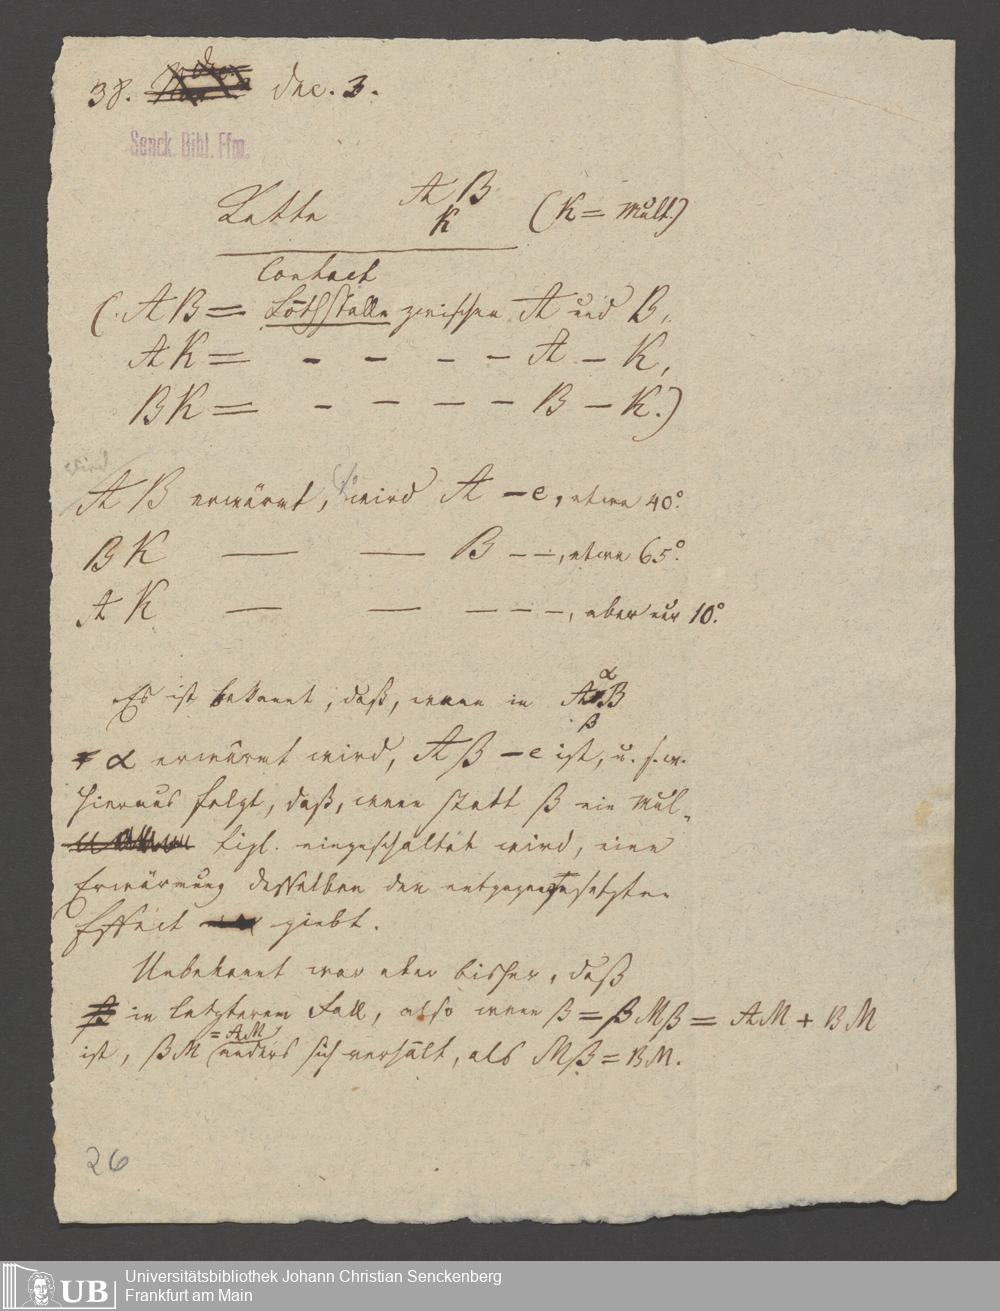 38. Dec. 3.
Senck. Bibl. Ffm.
Kette A B (K = Mult)
K
Contact
(. AB = Löthstelle zwischen A und B,
AK = - - - - A - K,
BK = - - - - B - K.)
wird
A B erwärmt, wird A - e, etwa 40°.
BK — — B - -, etwa 65°.
AK — — - - - -, aber nur 10°.
Es ist bekannt, daß, wenn in A B
α
β
α erwärmt wird, Aβ - e ist, u. s. w.
Hieraus folgt, daß, wenn statt β ein Mul-
tipl. eingeschaltet wird, eine
Erwärmung desselben den entgegengesetzten
Effect giebt.
Unbekannt war aber bisher, daß
in letzterem Fall, also wenn β = βMβ = AM + BM
= AM
ist, βM anders sich verhält, als Mβ = BM.
26
UB
Universitätsbibliothek Johann Christian Senckenberg
Frankfurt am Main